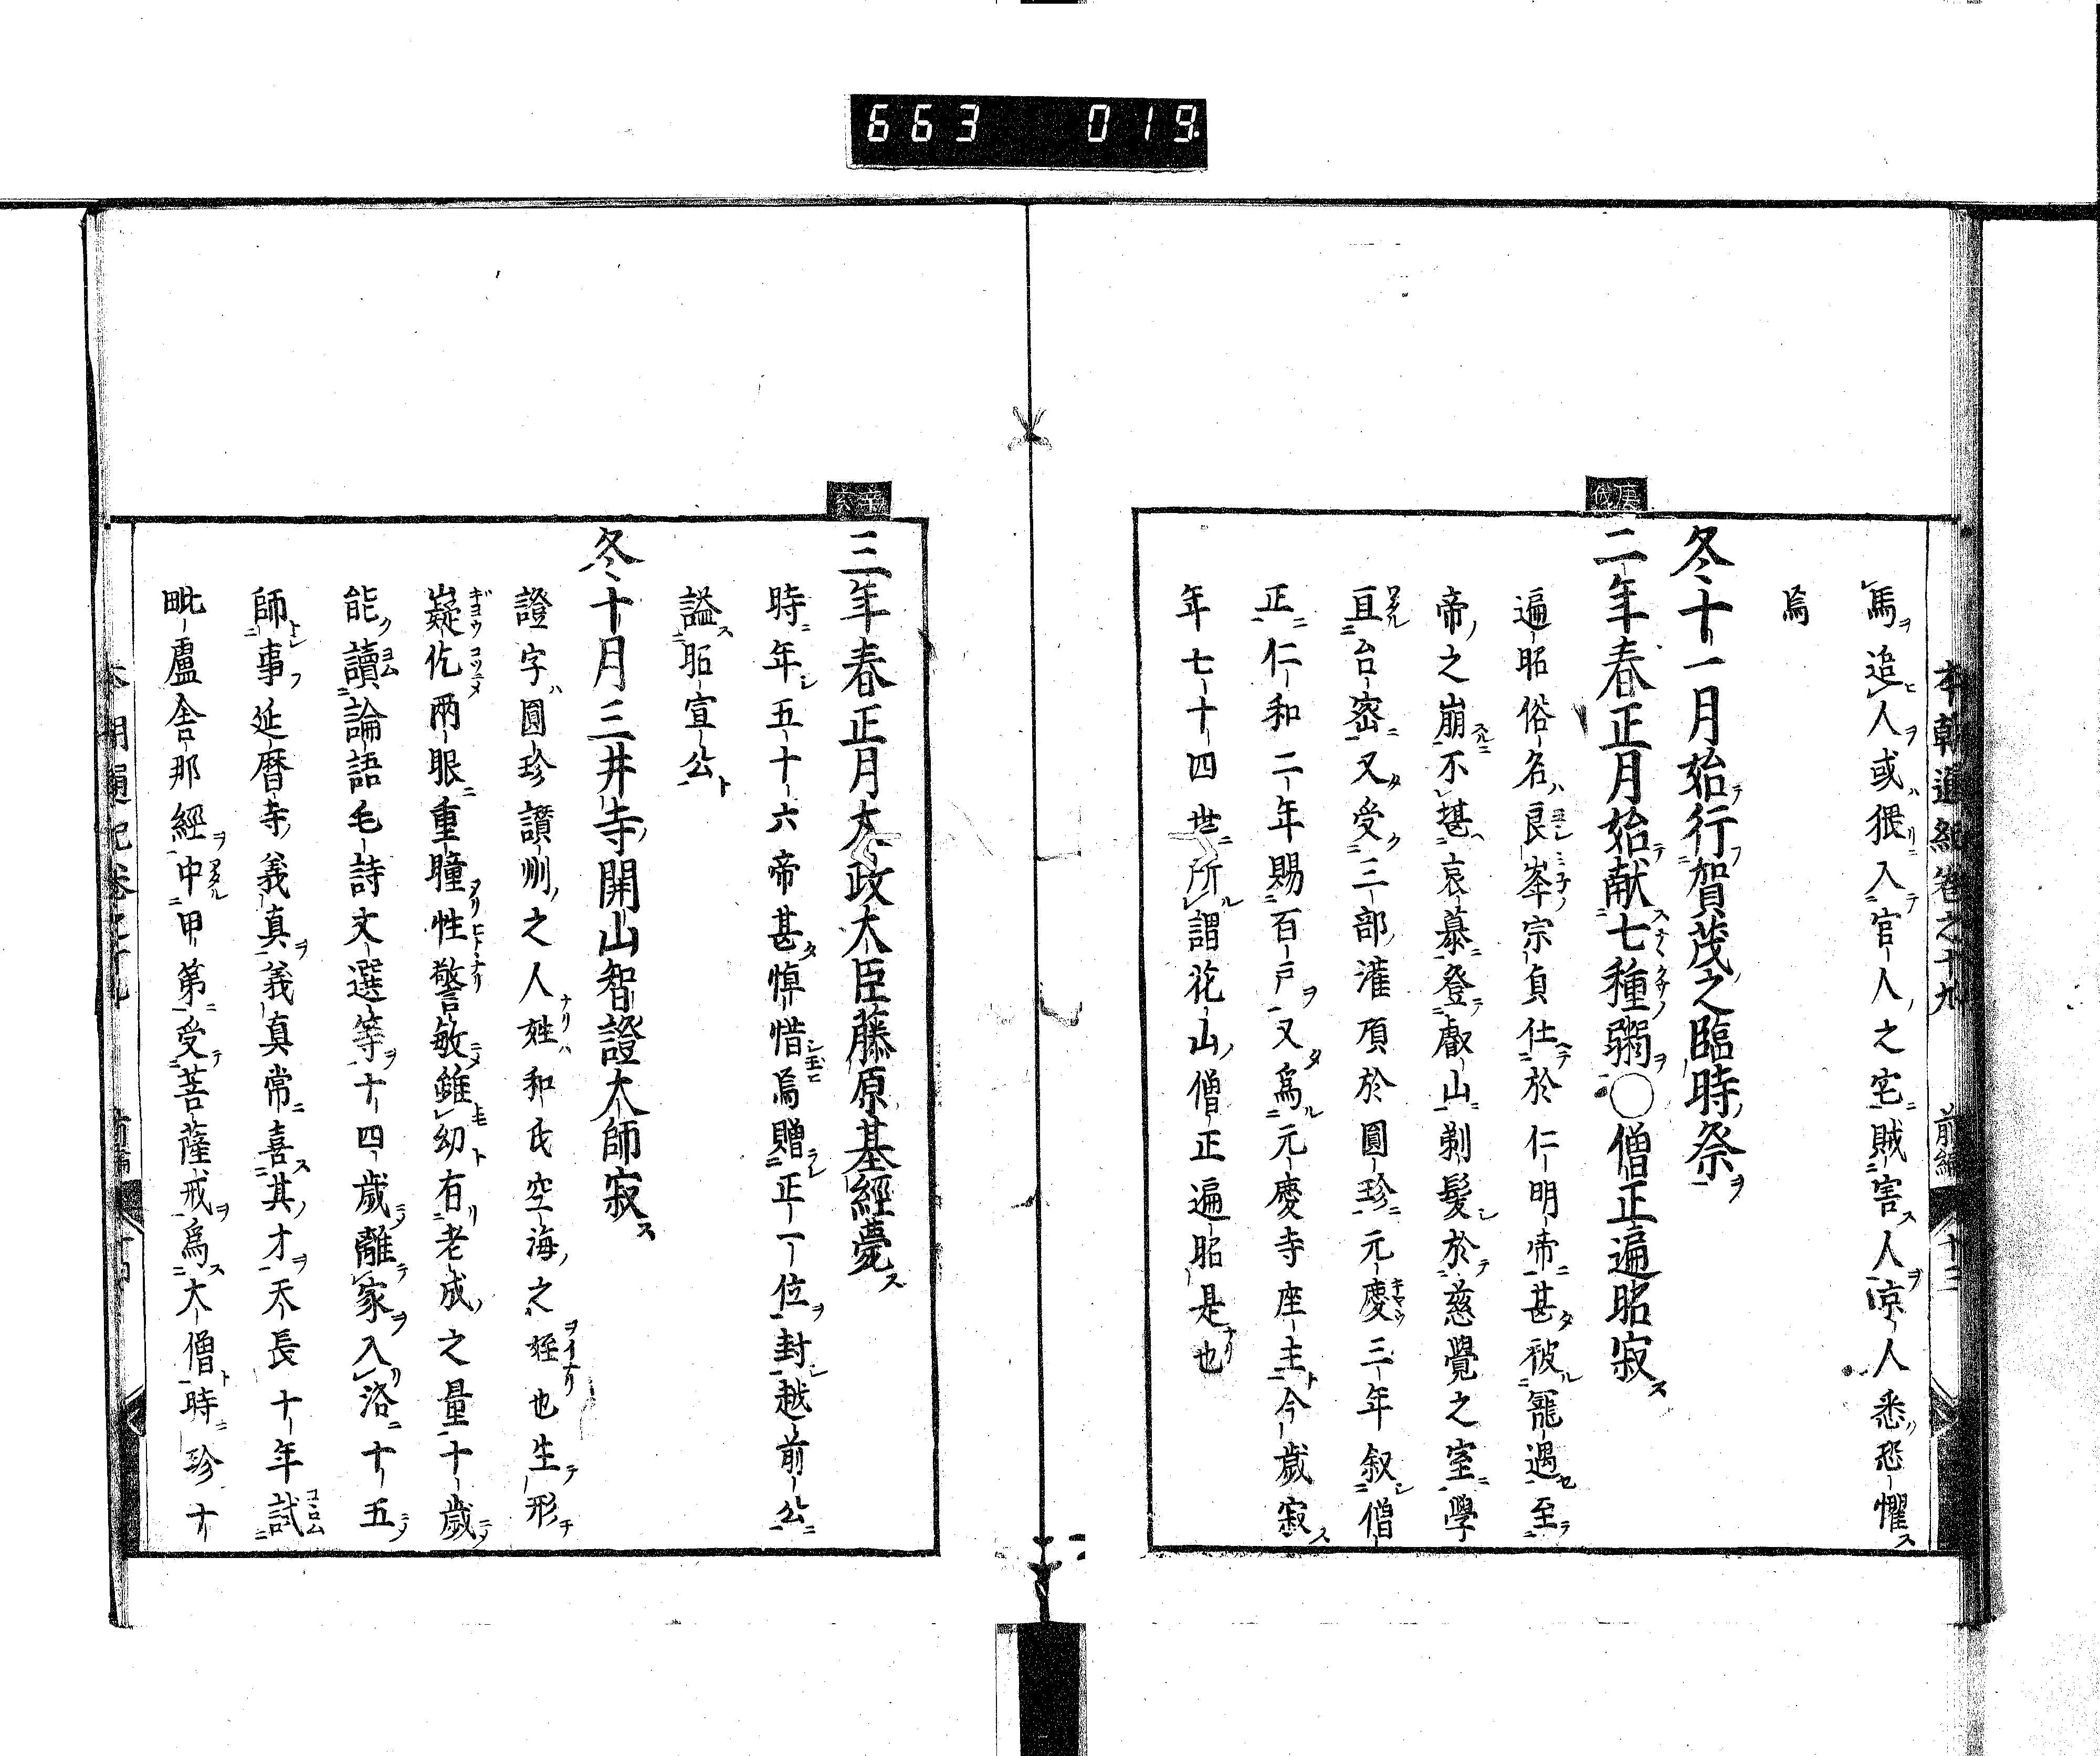 663 019
本朝通紀卷之十九 前編 十三
馬追人或猥入官人之宅賊害人京人悉恐懼
焉
冬十一月始行賀茂之臨時祭
庚戌
二年春正月始献七種粥〇僧正遍昭寂
遍昭俗名良岑宗貞仕於仁明帝甚被寵遇至
帝之崩不堪哀慕登叡山剃髮於慈覺之室學
亘台密又受三部灌頂於圓珍元慶三年叙僧
正仁和二年賜百戸又為元慶寺座主今歲寂
年七十四世所謂花山僧正遍昭是也
辛亥
三年春正月太政大臣藤原基經薨
時年五十六帝甚悼惜焉贈正一位封越前公
謚昭宣公
冬十月三井寺開山智證大師寂
證字圓珍讃州之人姓和氏空海之姪也生形
嶷仡兩眼重瞳性警敏雖幼有老成之量十歲
能讀論語毛詩文選等十四歲離家入洛十五
師事延曆寺義真義真常喜其才天長十年試
毗盧舍那經中甲第受菩薩戒為大僧時珍十
本朝通紀卷之十九 前編